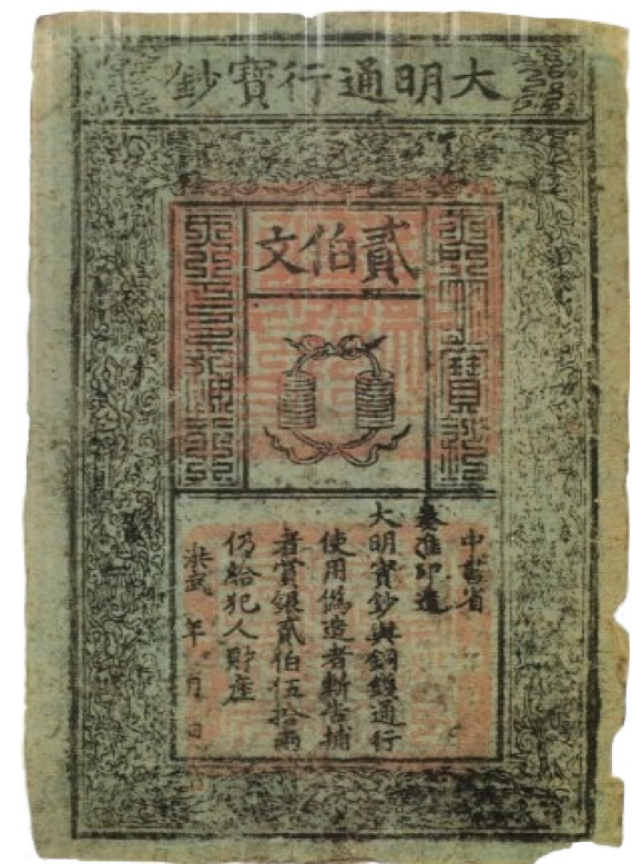 大明通行寶鈔
貳伯文
中書省
奏准印造
大明寶鈔與銅錢通行
使用僞造者斬告捕
者賞銀貳伯伍拾兩
仍給犯人財産
洪武 年 月 日